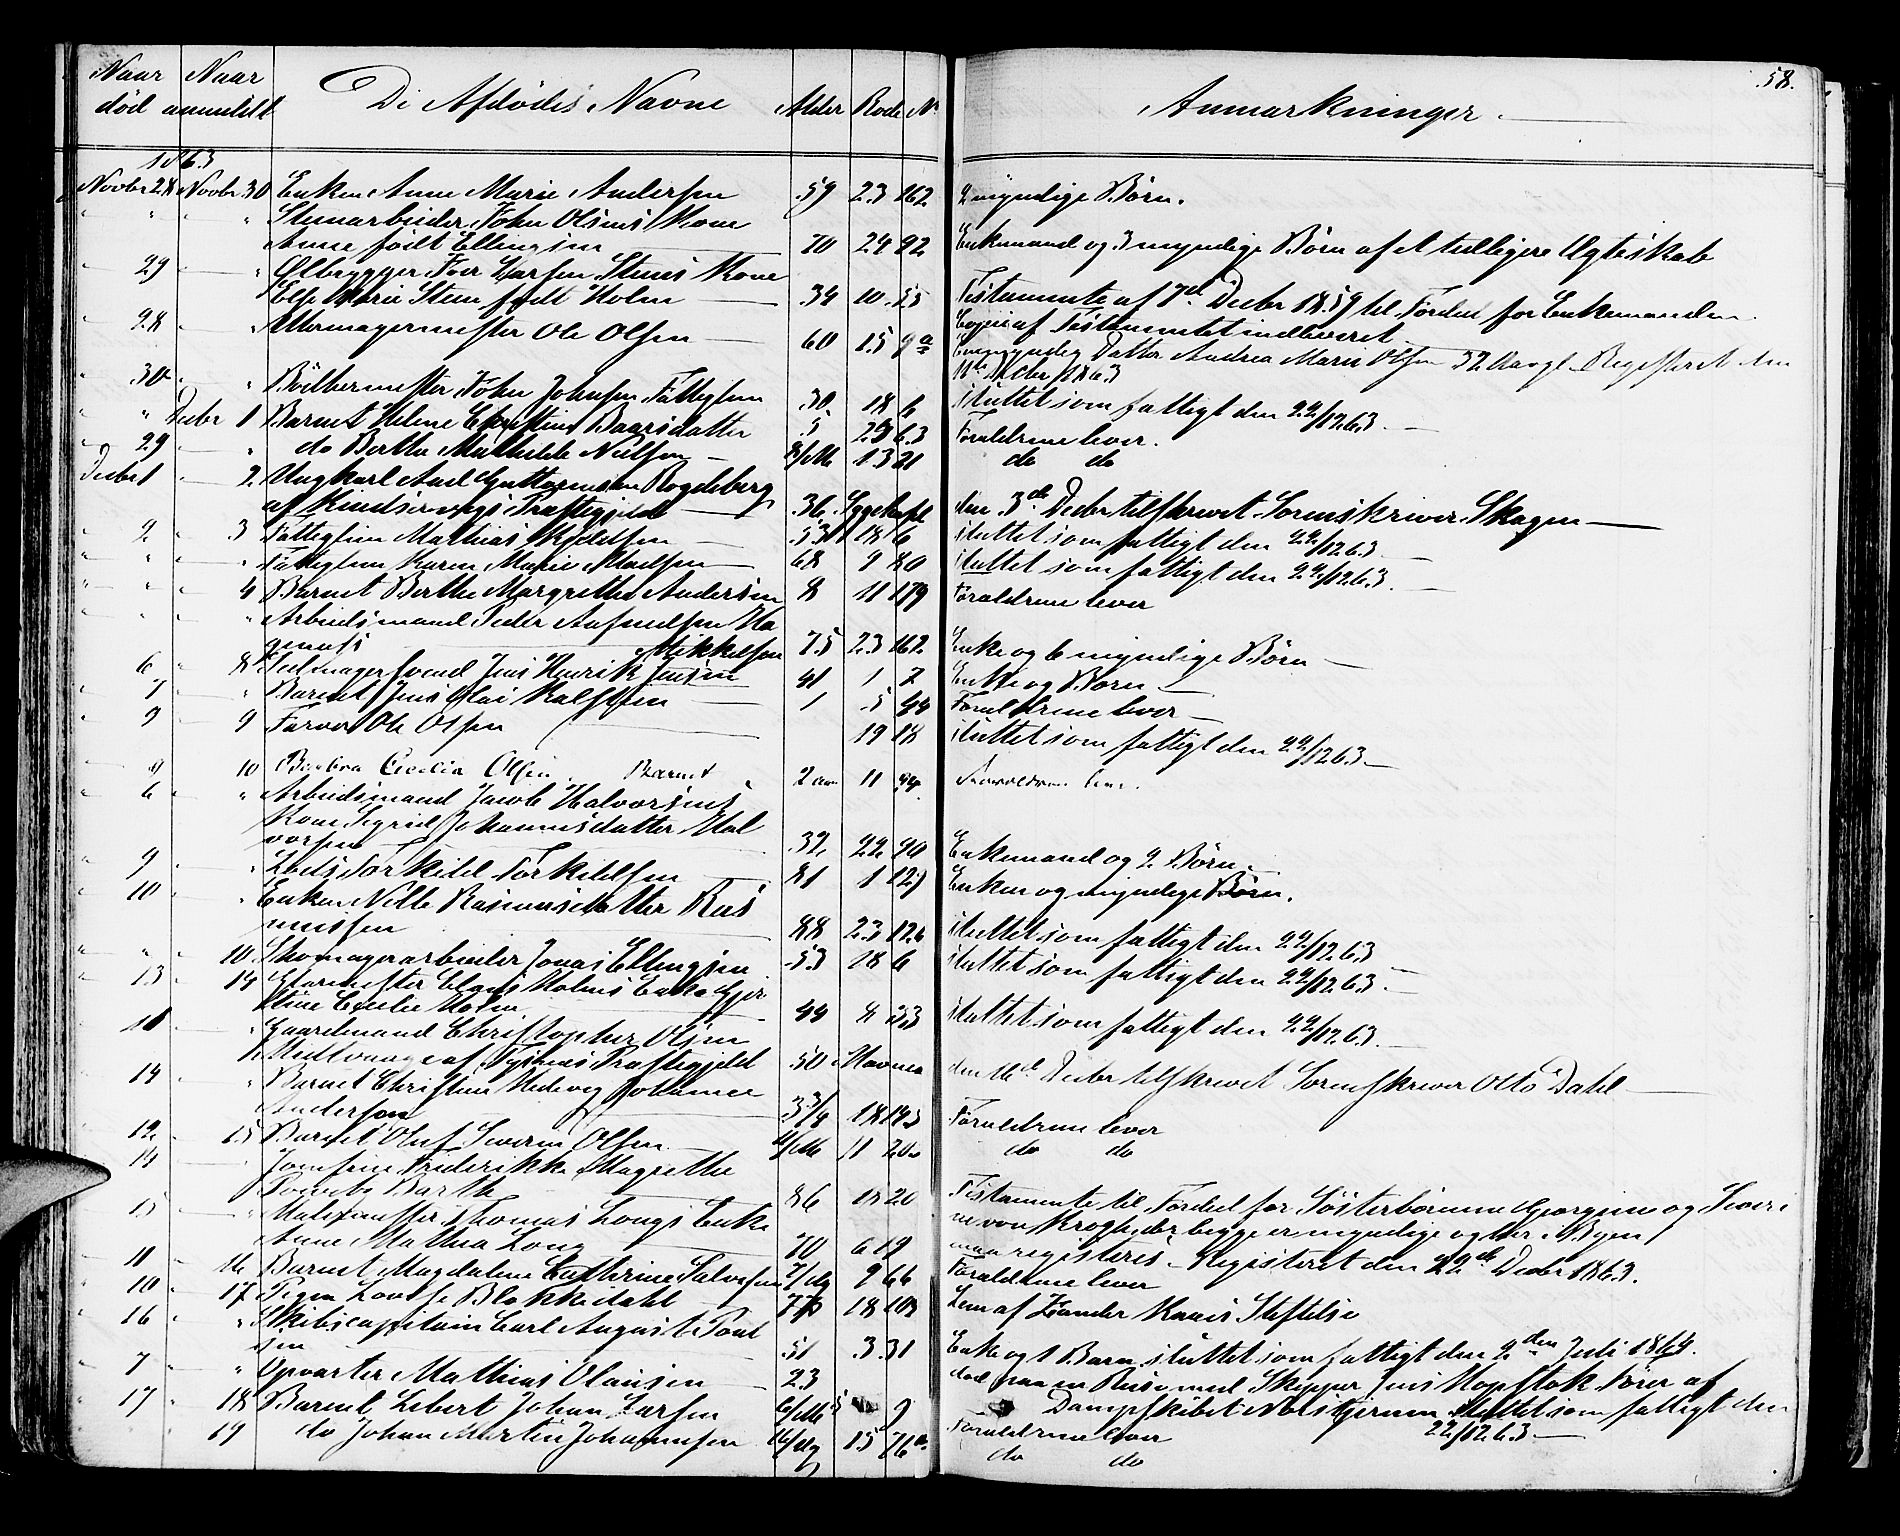 58.
Naar død Naar anmeldt De Afdødes Navne Alder Rode No Anmærkninger.
1863
Novbr 28 Novbr 30 Enken Anne Marie Andersen 59 23 162 2 myndige Børn.
" " " Stenarbeider John Olsens Kone
Anne født Ellingsen 70 24 92 Enkemand og 3 myndige Børn af et tidligere Ægteskab
29 " Ølbrygger Iver Larsen Steens Kone
Else Marie Steen født Holm 34 10 55 Testamente af 7de Decbr 1859 til Fordel for Enkemanden.
Copie af Testamentet indleveret
28 " Uhrmagermester Ole Olsen 60 15 9a En myndig Datter Andrea Marie Olsen 32 Aar gl. Registreret den
30 " Bødkermester John Johnsen Fattiglem 30 18 6 sluttet som fattigt den 22/12 63.
" Decbr 1 Barnet Helene Christine Baarsdatter 5 23 63 Forældrene lever.
29 " do Berthe Mathilde Nielsen 13 21 do do
Decbr 1 2 Ungkarl Aad Guttormsen
af Præstegjeld 36 Sygehuset den 3de Decbr tilskrevet Sorenskriver Skagen
2 3 Fattiglem Mathias 53 18 6 sluttet som fattigt den 22/12 63.
" " " Fattiglem Karen Marie Madsen 68 9 80 sluttet som fattigt den 22/12 63.
" " 4 Barnet Berthe Margrethe Andersen 8 11 179 Forældrene lever
" " " Arbeidsmand Peder
Mikkelsen 75 23 162 Enke og 6 myndige Børn
6 8 svend Jens Henrik Jensen 41 1 7 Enke og Børn
7 " Barnet Jens 1 5 44 Forældrene lever
9 9 Farver Ole Olsen 19 18 sluttet som fattigt den 22/12 63.
9 10 Barbra Cecilia Olsen Barnet 2 aar 11 94 Forældrene lever.
6 " Arbeidsmand Jacob Halvorsens
Kone Sigrid Johannesdatter Hal
vorsen 32 22 90 Enkemand og 2 Børn.
9 " Lods Torkild Torkildsen 81 1 129 Enken og myndige Børn.
10 " Enken Nille Rasmusdatter Ras
mussen 88 23 126 sluttet som fattigt den 22/12 63
" " 10 Skomagerarbeider Jonas Ellingsen 53 18 6 sluttet som fattigt den 22/12 63.
13 14 Holms Enke
Cecilie Holm 44 8 33 sluttet som fattigt den 22/12 63.
10 " Gaardmand Christopher Olsen
af Tysnæs Præstegjeld 50 den 16de Decbr tilskrevet Sorenskriver Otto Dahl
14 " Barnet Christine Hedvig Johanne
Andersen 3 3/4 18 143 Forældrene lever
12 15 Barnet Oluf Severin Olsen 11 20 do do
14 " Jomfrue Friderikke Magrethe
Barth 86 18 20 Testamente til Fordel for Søsterbørnene Georgine og Sever
ine von Krogh, der begge er myndige og her i Byen
15 " Thomas Longs Enke
Anne Mathea Long 70 6 19 maa registeres. Registeret den 22de Decbr 1863.
11 16 Barnet Magdalene Cathrine 9 66 Forældrene lever
10 17 Pigen Lovise Blækkedahl 77 18 103 Lem af Zander Kaaes Stiftelse
16 " Skibscapitain Carl August Poul
sen 51 3 31 Enke og 1 Barn sluttet som fattigt den 2den Juli 1864.
7 " Opvarter Mathias Olausen 23 død paa en Reise med Skipper Jens Fører af
Dampskibet sluttet som fattigt den
22/12 63
17 18 Barnet Johan Larsen 9 Forældrene lever
19 do Johan Martin Johannesen 15 76 do do